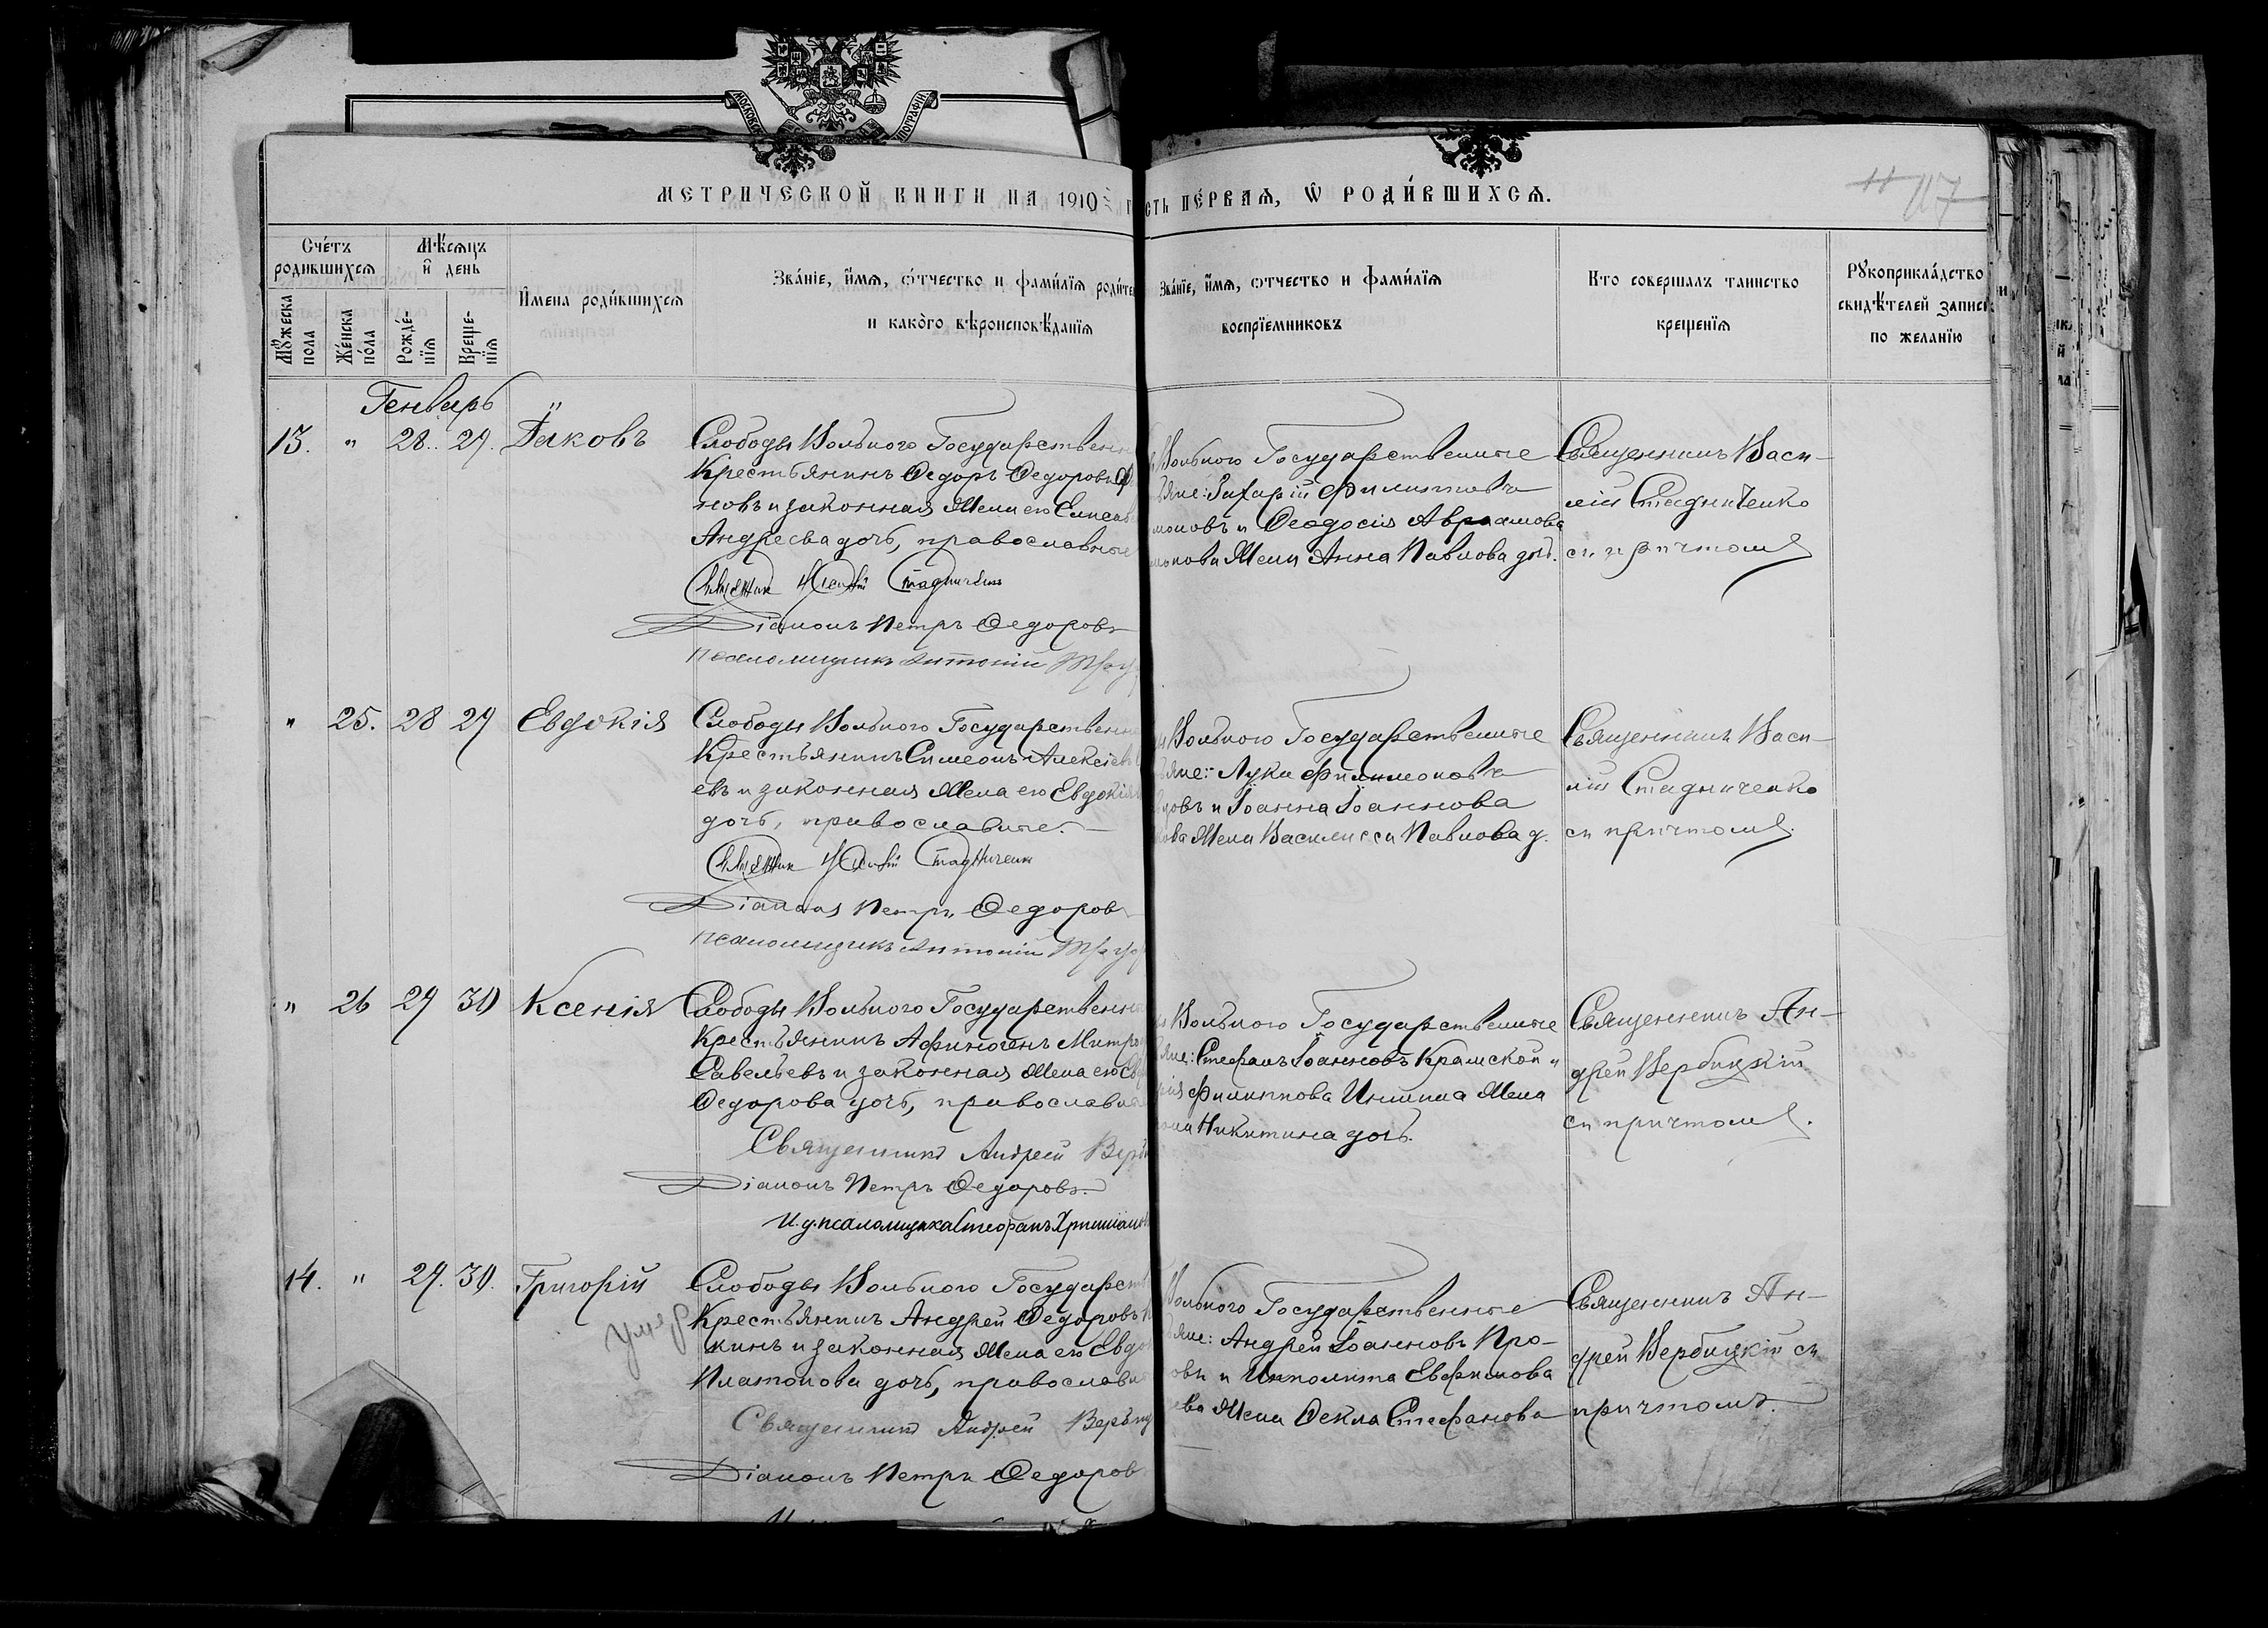 МЕТРИЧЕСКОЙ КНИГИ НА 1910
СТЬ ПЕРВАЯ, Ѡ РОДИ́ВШИХСЯ.
117
Сче́тъ родившихся
Мѣ́сяцъ и҆ день
Мꙋ́жеска пола
Же́нска по́ла
Рожде́нїя
Креще́нїя
И҆мена роди́вшихся
Зва́нїе, и҆́мя, о҆́тчество и фами́лїя роди́те
и како́го вѣроисповѣ́данїя
Зва́нїе, и҆́мя, о҆тчество и фами́лїя
воспрїемниковъ
Кто совершалъ таинство
крещенїя
Рꙋкоприкла́дство
свидѣ́телей записи
по желанїю
Генварь
13. " 28. 29. Іаковъ
Слободы Вольного Государственн
Крестьянинъ Ѳедоръ Ѳедоровъ Ф
новъ и законная жена его Елисав
Андреева дочь, православные
Священник Василій Стадниченко
Діаконъ Петръ Ѳедоровъ
псаломщикъ Антоній
Вольного Государственные
яне: Захарій Филиппова
моновъ и Ѳеодосія Авраамова
монова жена Анна Павлова доч.
Священникъ Васи-
лій Стадниченко
съ причтомъ
" 25. 28 29 Евдокія
Слободы Вольного Государственн
Крестьянинъ Симеонъ Алексіев
евъ и законная жена его Евдокія
дочь, православные.
Священник Василій Стадниченк
Діаконъ Петръ Ѳедоров
псаломщикъ Антоній
Вольного Государственные
яне: Лука Филимонова
овъ и Іоанна Іоаннова
ова жена Василисса Павлова д.
Священникъ Васи-
лій Стадниченко
съ причтомъ.
" 26 29 30 Ксенія
Слободы Вольного Государственн
Крестьянинъ Афиногенъ Митро
Савельевъ и законная жена его
Ѳедорова дочь, православн
Священникъ Андрей Верб
Діаконъ Петръ Ѳедоровъ.
И. д. псаломщика Стефанъ Христіанов
Вольного Государственные
яне: Стефанъ Іоанновъ Крамской и
рія Филиппова Иншина жена
Никитина дочь.
Священникъ Ан-
дрей Вербицкій
съ причтомъ.
14. " 29. 30. Григорій
умер
Слободы Вольного Государств
Крестьянинъ Андрей Ѳедоровъ
кинъ и законная жена его Евдо
Платонова дочь, православн
Священникъ Андрей Вербиц
Діаконъ Петръ Ѳедоров
Вольного Государственные
яне: Андрей Іоанновъ Про-
овъ и Ипполита Евфимова
ева жена Ѳекла Стефанова
Священникъ Ан-
дрей Вербицкій съ
причтомъ.